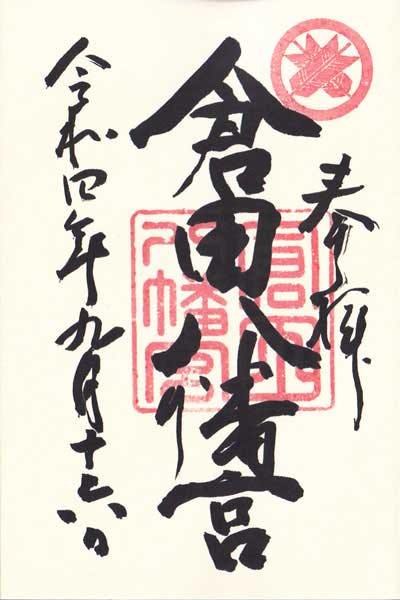 奉拝
倉田八幡宮
令和四年九月十六日
倉田
八幡宮